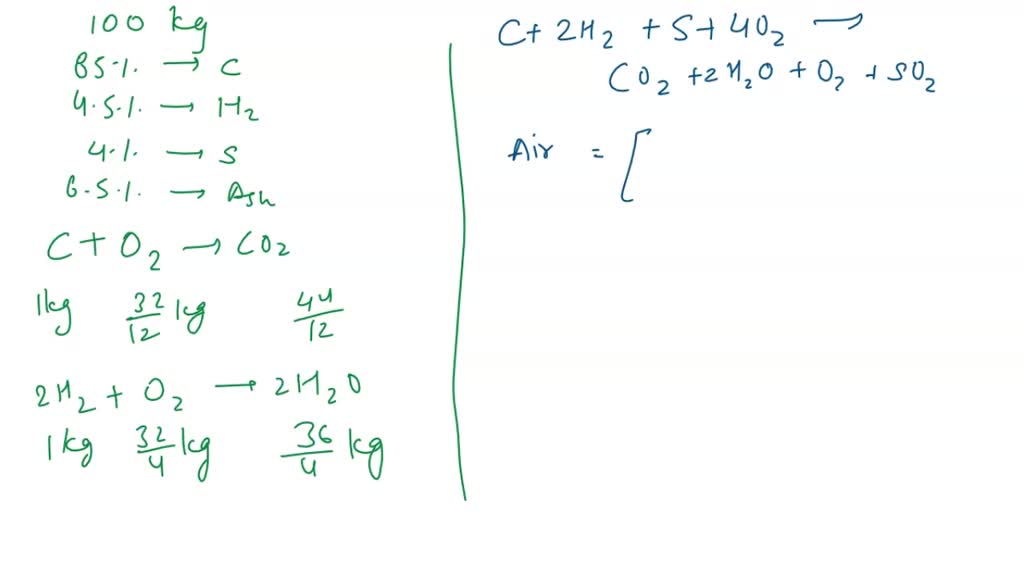 100 kg
85·1· → C
4·5·1· → H₂
4·1· → S
6·5·1· → Ash
C + O₂ → CO₂
1kg 32/12 kg 44/12
2H₂ + O₂ → 2H₂O
1kg 32/4 kg 36/4 kg
C + 2H₂ + S + 4O₂ →
CO₂ + 2H₂O + O₂ + SO₂
Air = [